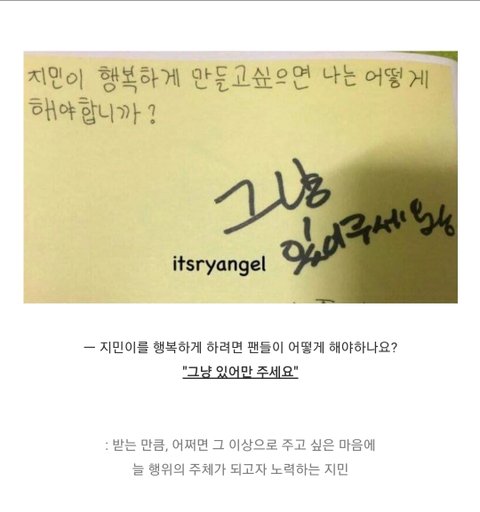 지민이 행복하게 만들고싶으면 나는 어떻게
해야합니까?
그냥
있어주세요
itsryangel
ㅡ 지민이를 행복하게 하려면 팬들이 어떻게 해야하나요?
"그냥 있어만 주세요"
: 받는 만큼, 어쩌면 그 이상으로 주고 싶은 마음에
늘 행위의 주체가 되고자 노력하는 지민